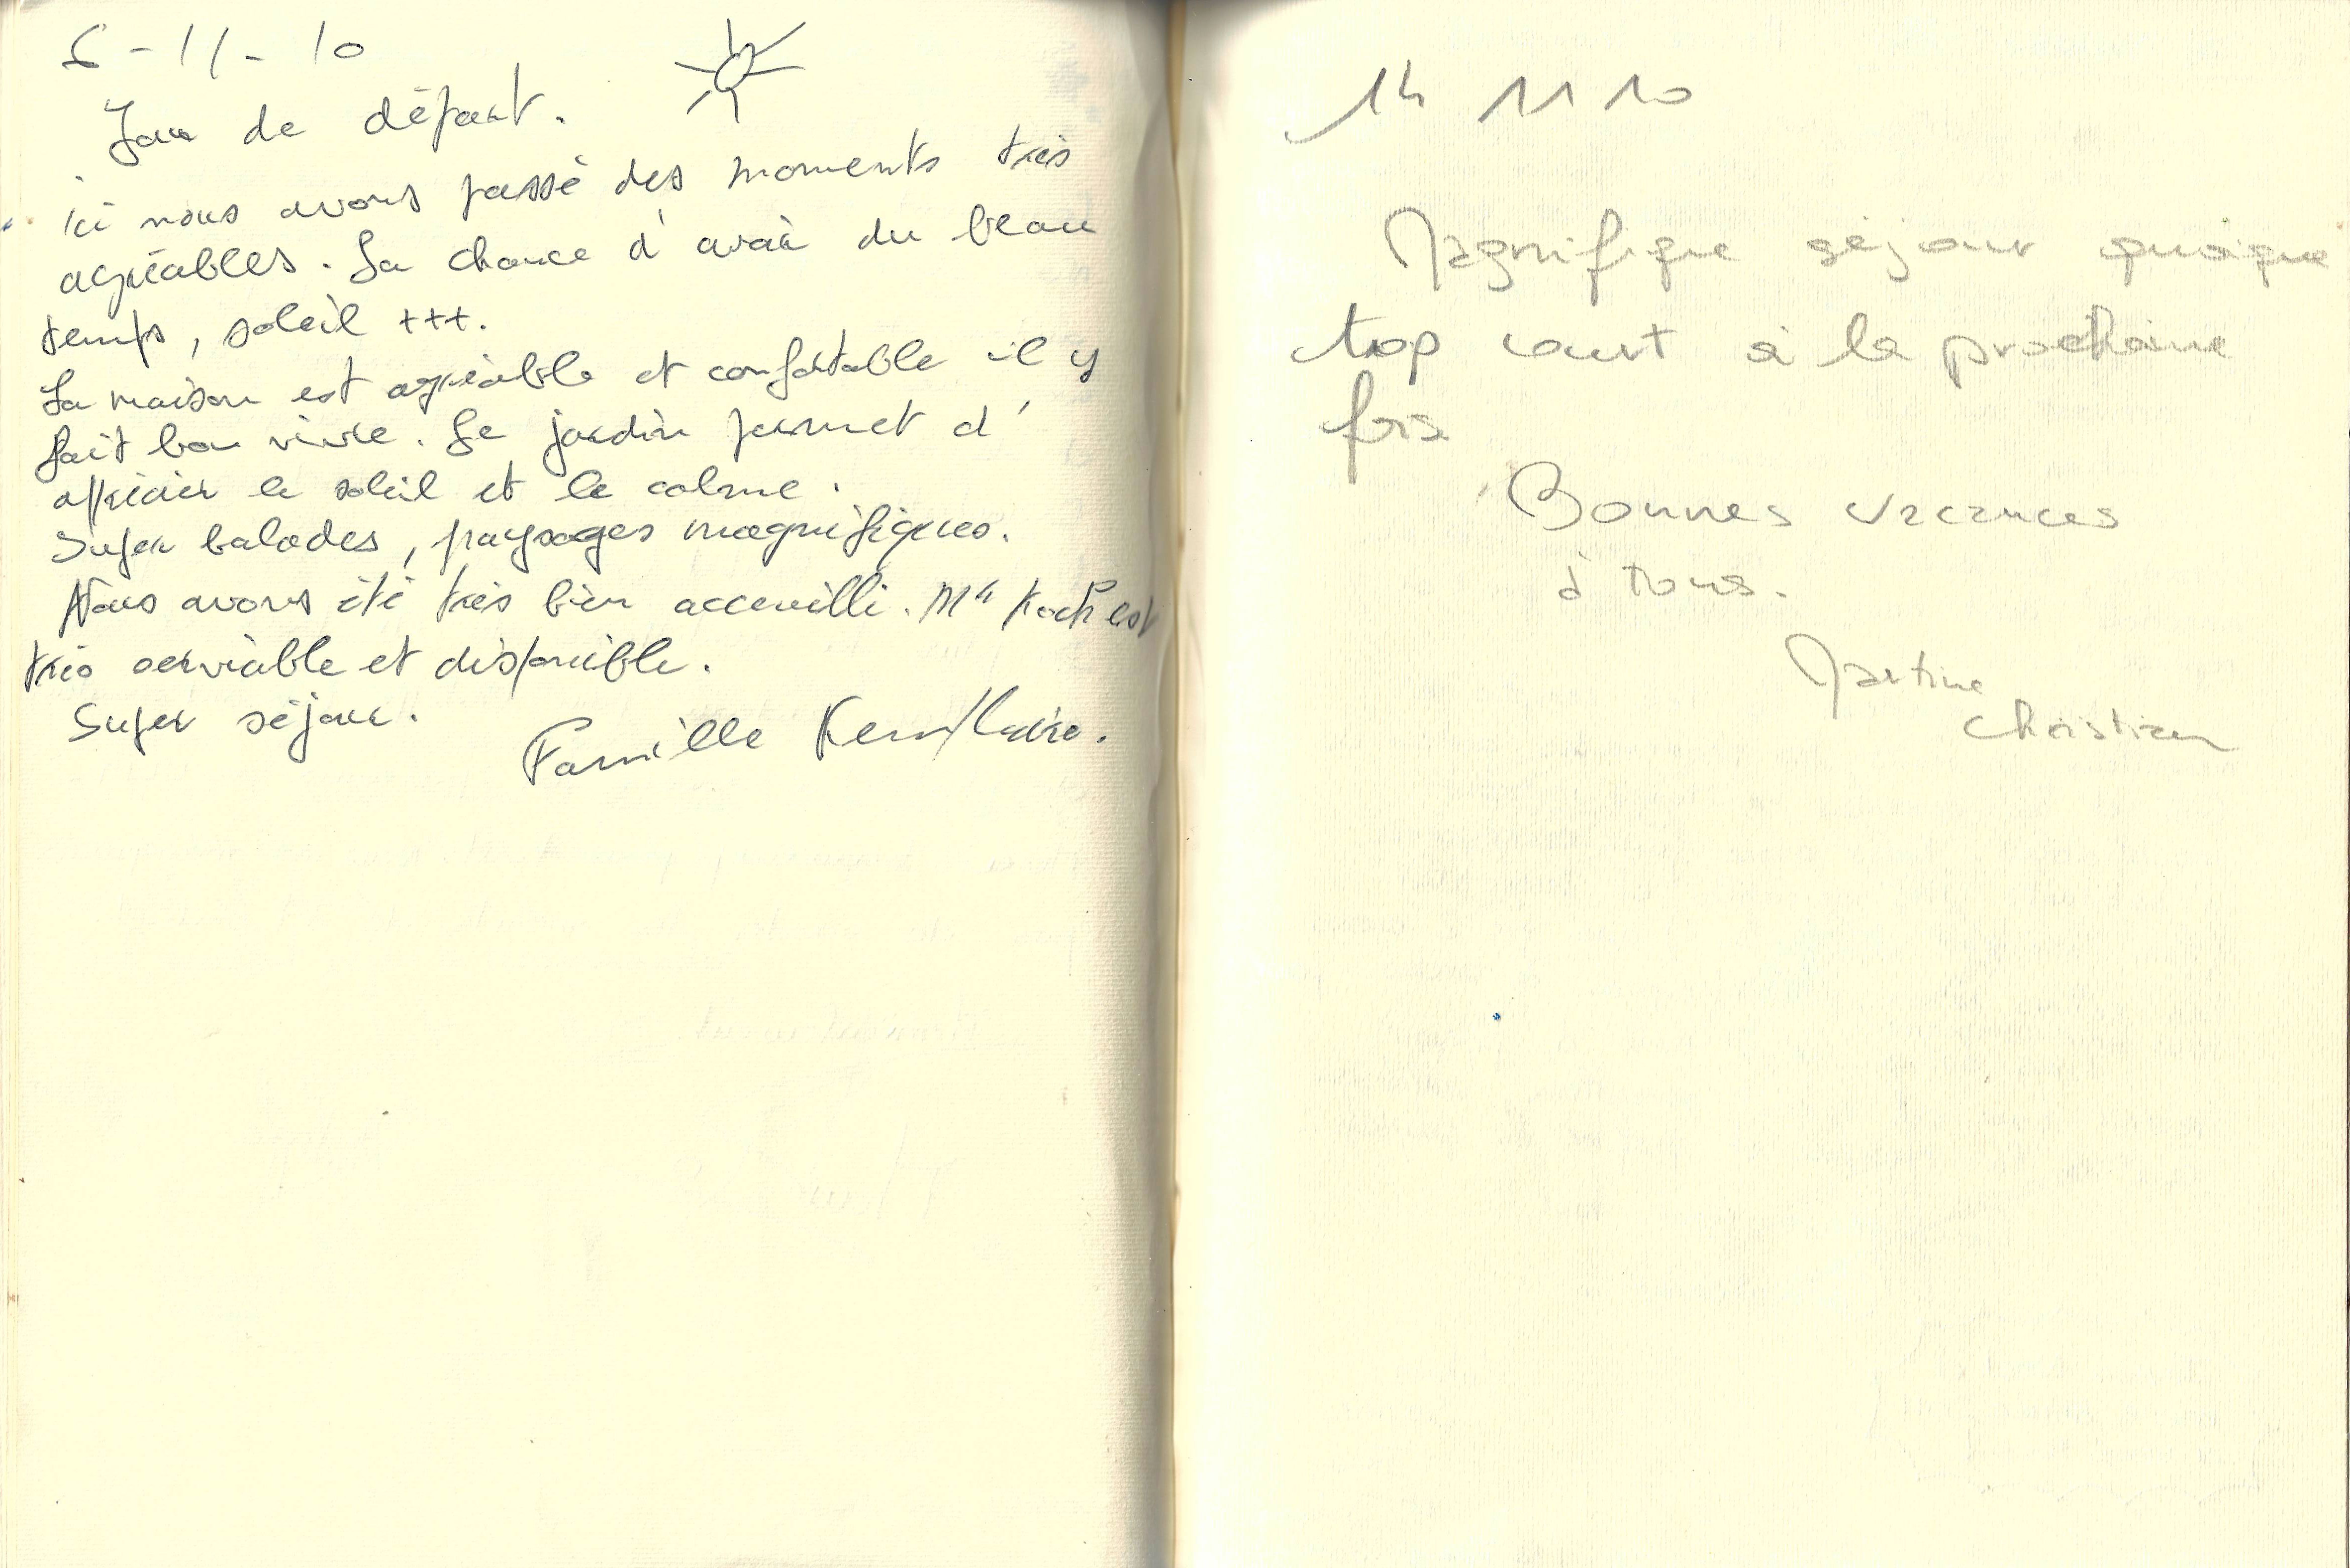 6-11-10
Jour de départ.
ici nous avons passé des moments très
agréables. La chance d'avoir du beau
temps, soleil +++.
La maison est agréable et confortable il y
fait bon vivre. Le jardin permet d'
apprécier le soleil et le calme.
Super balades, paysages magnifiques.
Nous avons été très bien accueilli. Mr Koch est
très serviable et disponible.
Super séjour.
Famille
14 11 10
Magnifique séjour quoique
trop court à la prochaine
fois
Bonnes vacances
à tous.
Martine
Christian